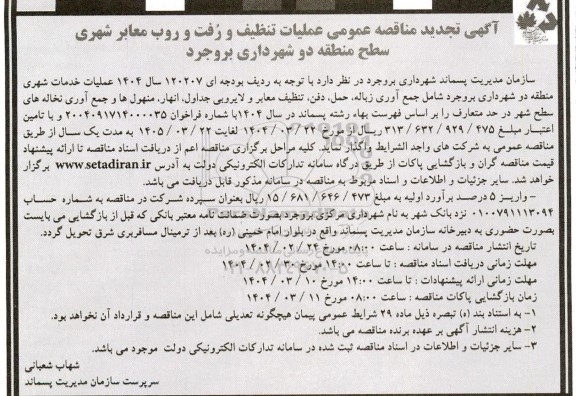 آگهی تجدید مناقصه عمومی عملیات تنظیف و رُفت و روب معابر شهری
سطح منطقه دو شهرداری بروجرد
سازمان مدیریت پسماند شهرداری بروجرد در نظر دارد با توجه به ردیف بودجه ای ۱۲۰۲۰۷ سال ۱۴۰۴ عملیات خدمات شهری
منطقه دو شهرداری بروجرد شامل جمع آوری زباله، حمل، دفن، تنظیف معابر و لایروبی جداول، انهار، منهول ها و جمع آوری نخاله های
سطح شهر در حد متعارف را بر اساس فهرست بهاء رشته پسماند در سال ۱۴۰۴با شماره فراخوان ۲۰۰۴۰۹۱۷۱۴۰۰۰۰۳۵ و با تامین
اعتبار مبلغ ۴۷۵ / ۹۲۹ / ۶۳۲ / ۳۱۳ ریال از مورخ ۲۳ / ۰۳ / ۱۴۰۴ لغایت ۲۲ / ۰۳ / ۱۴۰۵ به مدت یک سال از طریق
مناقصه عمومی به شرکت های واجد الشرایط واگذار نماید. کلیه مراحل برگزاری مناقصه اعم از دریافت اسناد مناقصه تا ارائه پیشنهاد
قیمت مناقصه گران و بازگشایی پاکات از طریق درگاه سامانه تدارکات الکترونیکی دولت به آدرس www.setadiran.ir برگزار
خواهد شد. سایر جزئیات و اطلاعات و اسناد مربوط به مناقصه در سامانه مذکور قابل دریافت می باشد.
- واریز ۵ درصد برآورد اولیه به مبلغ ۴۷۳ / ۶۴۶ / ۶۸۱ / ۱۵ ریال بعنوان سپرده شرکت در مناقصه به شماره حساب
۰۱۰۰۷۹۱۱۱۳۰۹۴ نزد بانک شهر به نام شهرداری مرکزی بروجرد بصورت ضمانت نامه معتبر بانکی که قبل از بازگشایی می بایست
بصورت حضوری به دبیرخانه سازمان مدیریت پسماند واقع در بلوار امام خمینی (ره) بعد از ترمینال مسافربری شرق تحویل گردد.
تاریخ انتشار مناقصه در سامانه : ساعت ۰۸:۰۰ مورخ ۲۴ / ۰۲ / ۱۴۰۴
مهلت زمانی دریافت اسناد مناقصه : تا ساعت ۱۴:۰۰ مورخ ۳۰ / ۰۲ / ۱۴۰۴
مهلت زمانی ارائه پیشنهادات : تا ساعت ۱۴:۰۰ مورخ ۱۰ / ۰۳ / ۱۴۰۴
زمان بازگشایی پاکات مناقصه : ساعت ۰۸:۰۰ مورخ ۱۱ / ۰۳ / ۱۴۰۴
۱- به استناد بند (ه) تبصره ذیل ماده ۲۹ شرایط عمومی پیمان هیچگونه تعدیلی شامل این مناقصه و قرارداد آن نخواهد بود.
۲- هزینه انتشار آگهی بر عهده برنده مناقصه می باشد.
۳- سایر جزئیات و اطلاعات در اسناد مناقصه ثبت شده در سامانه تدارکات الکترونیکی دولت موجود می باشد.
شهاب شعبانی
سرپرست سازمان مدیریت پسماند